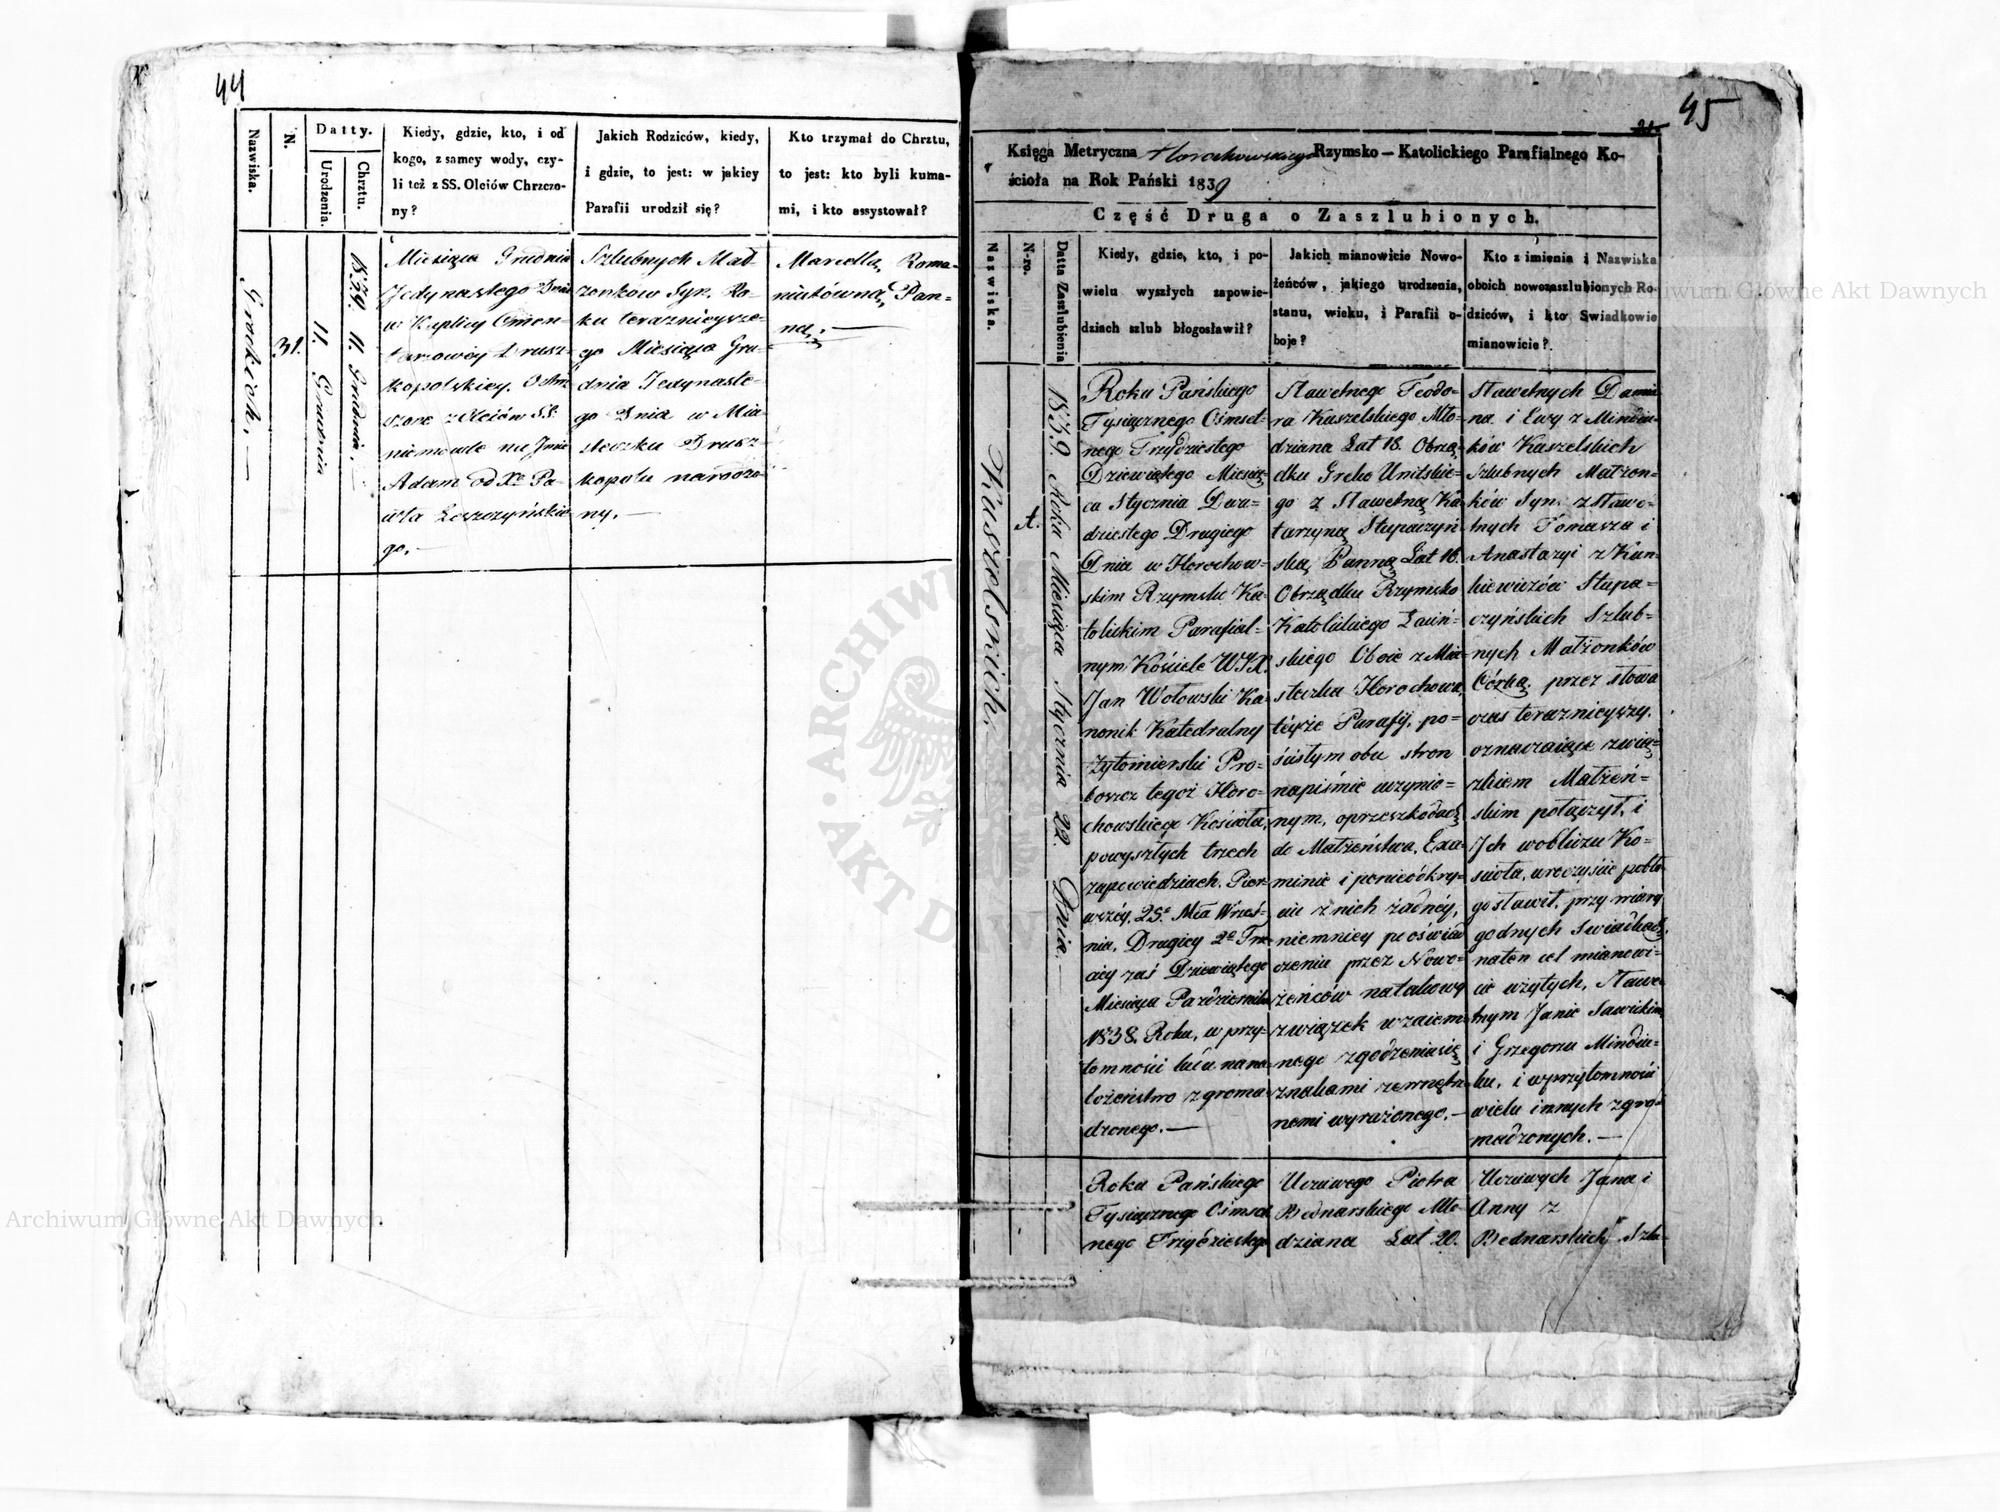 44
Nazwiska.
N.
Datty.
Urodzenia.
Chrztu.
Kiedy, gdzie, kto, i od
kogo, z samey wody, czy-
li też z SS. Oleiów Chrzczo-
ny?
Jakich Rodziców, kiedy,
i gdzie, to jest: w jakiey
Parafii urodził się?
Kto trzymał do Chrztu,
to jest: kto byli kuma-
mi, i kto assystował?
31.
11. Grudnia
11. Grudnia.
Miesiąca Grudnia
Jedynastego Dnia
w Kaplicy Cmen-
tarzowéy Drusz-
kopolskiey, Ochrz
czone z Oleiów SS:
niemowle na Jmie
Adam od Xa Pa-
wła Leszczyńskie
go.—
Szlubnych Mał-
żonków Syn. Ro-
ku teraznieysze-
go Miesiąca Gru-
dnia Jedynaste-
go Dnia w Mia-
steczku Drusz-
kopolu narodzo-
ny.—
Marcella, Roma-
niukówna, Pan-
na.—
45
Księga Metryczna Horochowskiego Rzymsko-Katolickiego Parafialnego Ko-
ścioła na Rok Pański 1839
Część Druga o Zaszlubionych.
Nazwiska.
N-ro.
Datta Zaszlubienia
Kiedy, gdzie, kto, i po-
wielu wyszłych zapowie-
dziach szlub błogosławił?
Jakich mianowicie Nowo-
żeńców, jakiego urodzenia,
stanu, wieku, i Parafii o-
boje?
Kto z imienia i Nazwiska
oboich nowozaszlubionych Ro-
dziców, i kto Swiadkowie
mianowicie?
Kaszelskich.
1839 Roku Miesiąca Stycznia 22. Dnia.—
Roku Pańskiego
Tysiącznego Ośmset-
nego Trzydziestego
Dziewiątego Miesią
ca Stycznia Dwu-
dziestego Drugiego
Dnia w Horochow-
skim Rzymsko Ka-
tolickim Parafial-
nym Kościele WJX.
Jan Wołowski Ka-
nonik Katedralny
Żytomierski Pro-
boszcz tegoż Horo-
chowskiego Kościoła,
powyszłych trzech
zapowiedziach, Pier-
wszéy, 25o Mca Wrześ-
nia, Drugiey 2o Trze
ciey zaś Dziewiątego
Miesiąca Pazdziernika
1838. Roku, w przy-
tomności ludu na na-
bożeństwo zgroma-
dzonego.—
Sławetnego Teodo-
ra Kaszelskiego Mło-
dziana Lat 18. Obrzą-
dku Greko Unitskie-
go z Sławetną Ka-
tarzyną Słupaczyń
ską Panną Lat 16.
Obrządku Rzymsko
Katolickiego Łaciń-
skiego Oboie z Mia-
steczka Horochowa,
téyże Parafij, po-
ścisłym obu stron
napiśmie uczynio-
nym, oprzeszkodach
do Małżeństwa, Exa-
minie i ponieodkry-
ciu z nich żadnéy,
niemniey poświad
czeniu przez Nowo-
żeńców natakowy
związek wzaiem-
nego zgodzenia się
znakami zewnętrz
nemi wyrażonego.—
Sławetnych Damia
na i Ewy z Mindiu-
ków Kaszelskich
Szlubnych Małżon-
ków Syn. z Sławe-
tnych Tomasza i
Anastazyi z Kun-
kiewiczów Słupa-
czyńskich Szlub-
nych Małżonków
Córką. przez słowa
czas teraznieyszy.
oznaczaiące zwią-
zkiem Małżeń-
skim połączył, i
Jch wobliczu Ko-
ścioła, uroczyście pobło-
gosławił, przy wiary
godnych Swiadkach
naten cel mianowi-
cie wziętych, Sławe-
tnym Janie Sawickim
i Grzegorzu Mindiu-
ku, i wprzytomności
wielu innych zgro-
madzonych.—
Roku Pańskiego
Tysiącznego Ośmset
nego Trzydziestego
Uczciwego Piotra
Bednarskiego Mło-
dziana Lat 20.
Uczciwych Jana i
Anny z
Bednarskich Szlu-
Archiwum Główne Akt Dawnych
Archiwum Główne Akt Dawnych